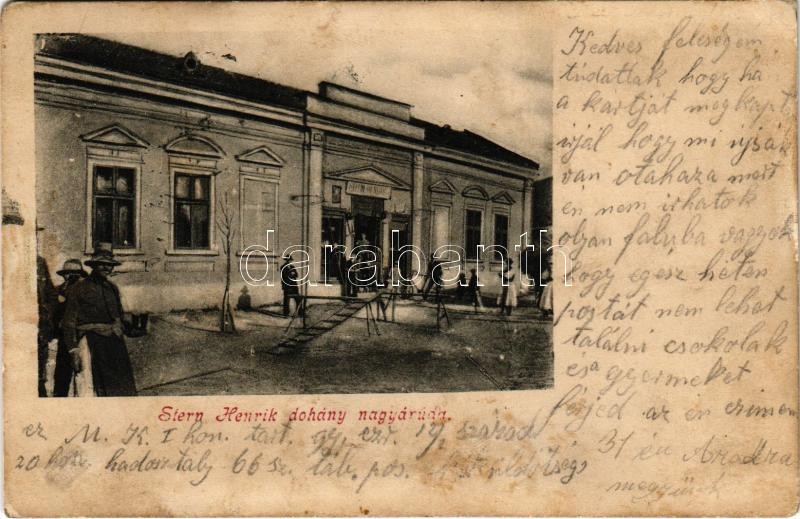 Kedves feleségem
tudatlak hogy ha
a kartját megkapt
irjál hogy mi ujság
van otahaza mert
én nem irhatok
olyan faluba vagyok
hogy egész héten
postát nem lehet
találni csokolak
és a gyermeket
férjed az én czimem
31 én Aradra
megyünk
STERN HENRIK
darabanth
Stern Henrik dohány nagyáruda.
ez M. K. I hon. tart. gy. ezr. 19 század
20 hadosztaly 66 sz. tab. pos.